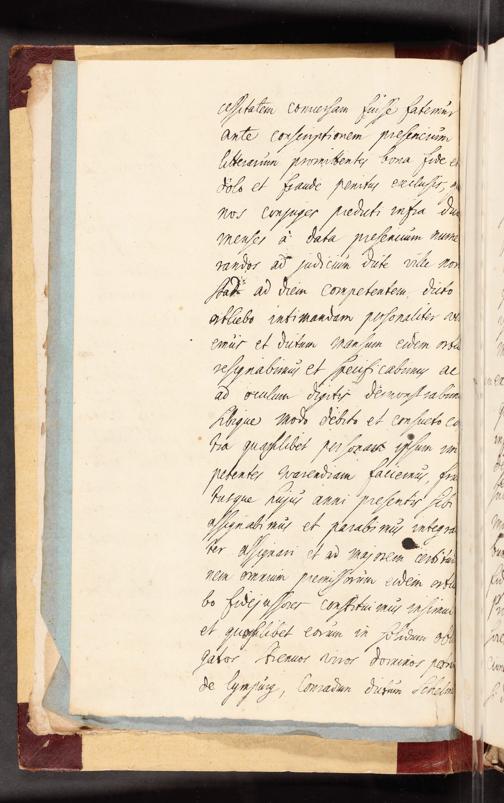 cessitatem conversam fuisse fatemur
ante conscriptionem presencium
litterarum promittentes bona fide et
dolo et fraude penitus exclusis,
nos conjuges predicti infra duos
menses à data presencium nume
randos ad judicium dicte ville non
ad diem competentem, dicto
intimandam personaliter
emus et dictum mansum eidem
resignabimus et specificabimus ac
ad oculum digitis demonstrabimus
sibique modo debito et consueto co
tra quamlibet personam ipsum im
petentes warendiam faciemus, fru
tusque hujus anni presentis sibi
assignabimus et parabimus integra
ter assignari et ad majorem certitu
nem omnium premissorum eidem
bo fidejussores constituimus
et quemlibet eorum in solidum
gatos strenuos viros dominos
de Lympurg, Conradum dictum